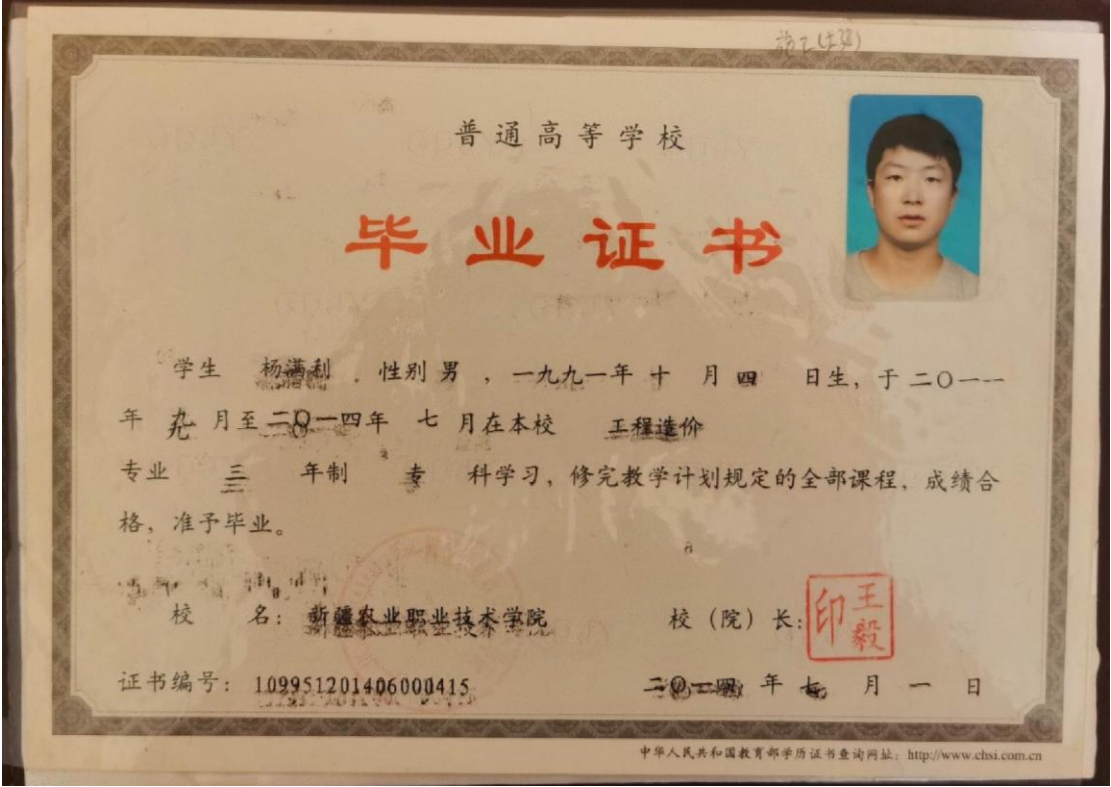 普通高等学校
毕业证书
学生 杨满利 ，性别 男 ，一九九一年 十 月 四 日生，于 二〇一一
年 九 月至 二〇一四年 七 月在本校 工程造价
专业 三 年制 专 科学习，修完教学计划规定的全部课程，成绩合
格，准予毕业。
校 名：新疆农业职业技术学院 校（院）长：王毅印
证书编号：109951201406000415 二〇一四 年 七 月 一 日
中华人民共和国教育部学历证书查询网址：http://www.chsi.com.cn